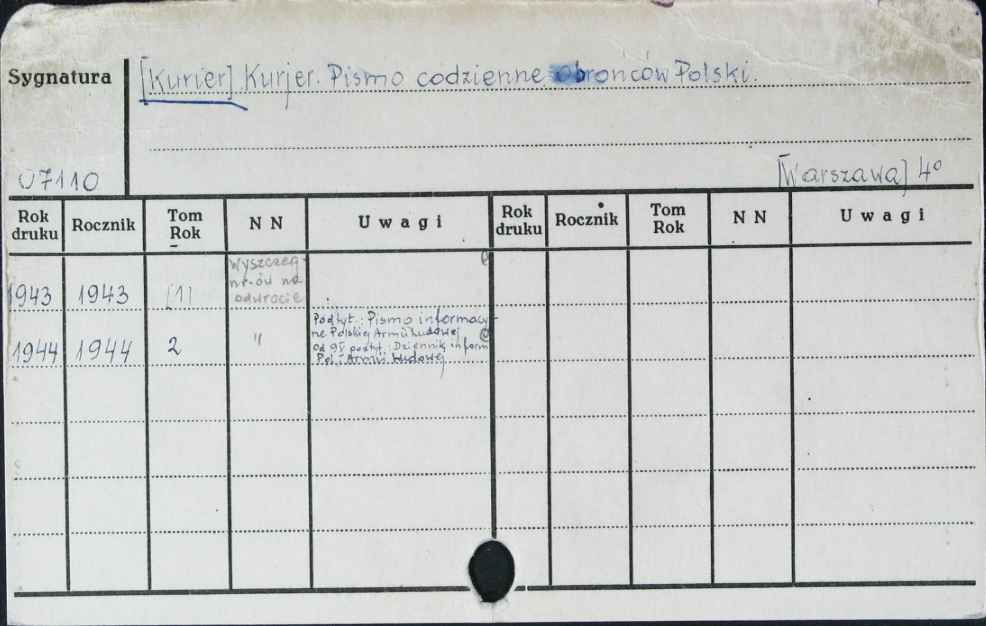 Sygnatura
[Kurier] Kurjer. Pismo codzienne obrońców Polski.
07110
[Warszawa] 4°
Rok druku Rocznik Tom Rok N N Uwagi Rok druku Rocznik Tom Rok N N Uwagi
1943 1943 [1] Wyszczeg. nr-ów na odwrocie
1944 1944 2 " Podtyt.: Pismo informacyj-
ne Polskiej Armii Ludowej
od 95 podtyt.: Dziennik inform.
Pol. Armii Ludowej